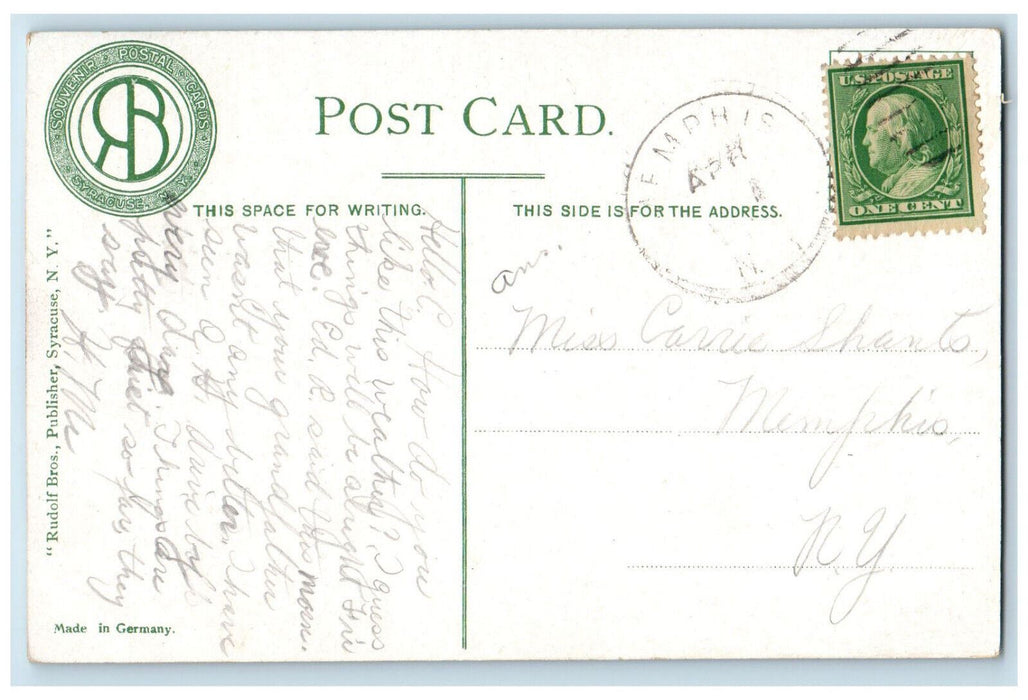 SOUVENIR POSTAL CARDS
RB
SYRACUSE, N. Y.
POST CARD.
THIS SPACE FOR WRITING.
THIS SIDE IS FOR THE ADDRESS.
MEMPHIS
APR
1
N.
U.S. POSTAGE
ONE CENT
"Rudolf Bros., Publisher, Syracuse, N. Y."
Made in Germany.
Hello C. How do you
like this weather? I guess
things will be alright Fri
eve. Ed. R. said this morn.
that your grandfather
wasn't any better. I have
seen drive by
very often. Things are
pretty quiet so far, they
say.
ans.
Miss Carrie Shants,
Memphis,
N.Y.